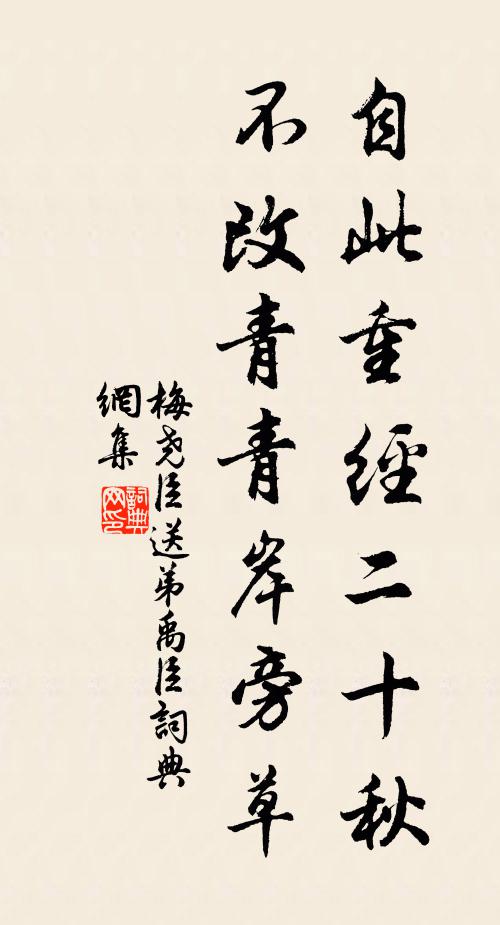 自此重經二十秋
不改青青岸旁草
梅尧臣送弟禹臣詞典
網集
詞典
网印